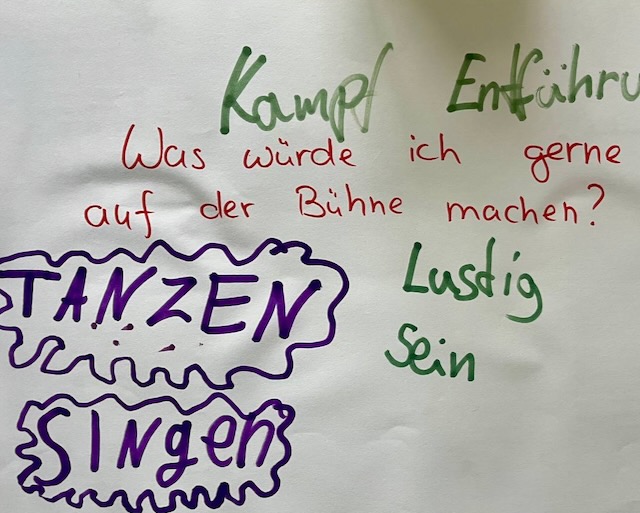 Kampf Entführu
Was würde ich gerne
auf der Bühne machen?
TANZEN
Lustig
Sein
SINgen